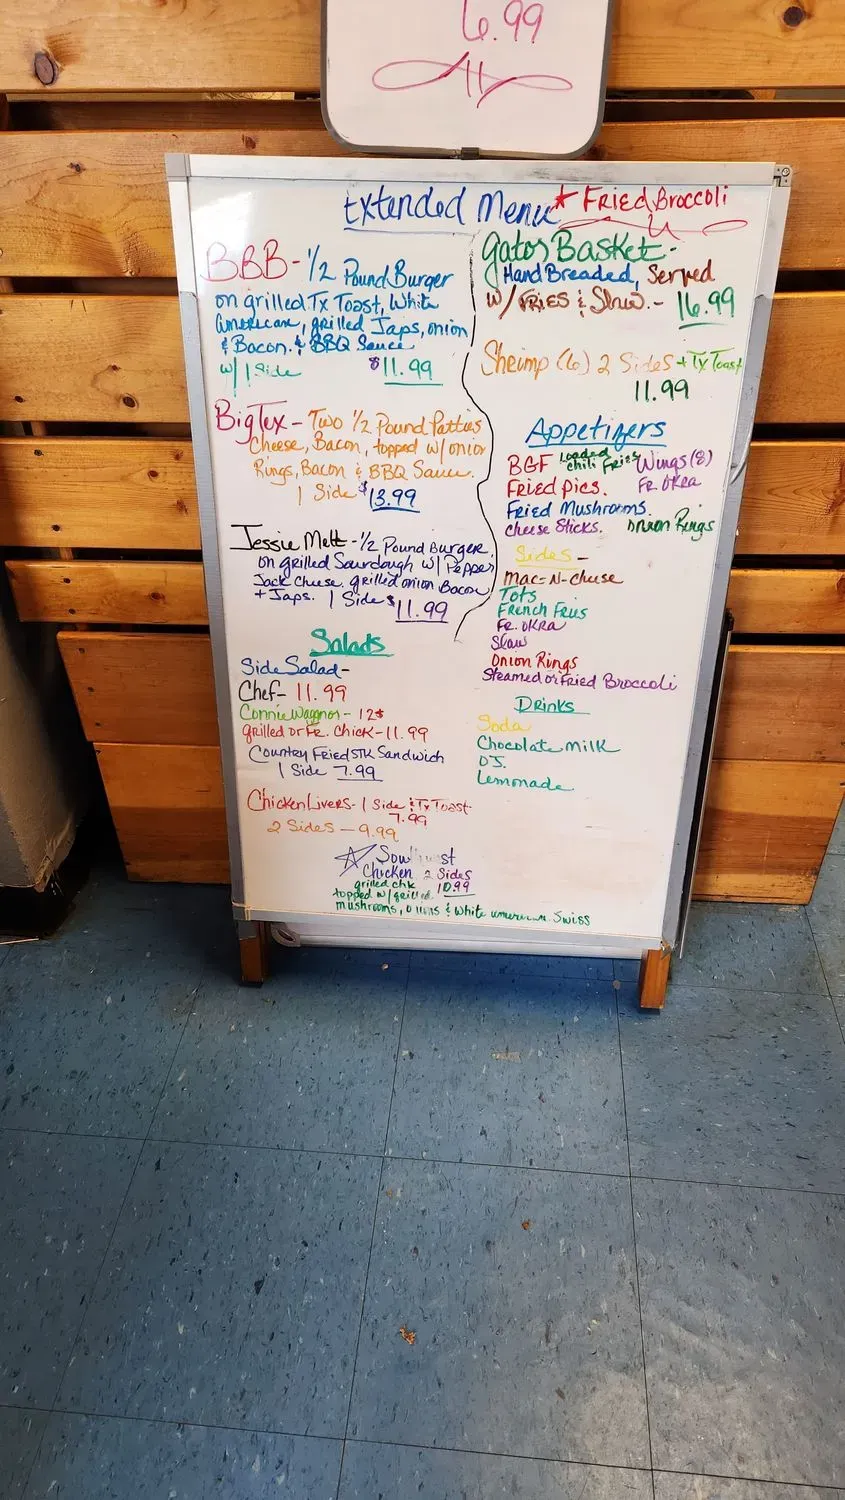 6.99
Extended Menu
* Fried Broccoli
BBB - 1/2 Pound Burger
on grilled Tx Toast, White
American, grilled Japs, onion
& Bacon. & BBQ Sauce
w/ 1 Side $11.99
Big Tex - Two 1/2 Pound Patties
Cheese, Bacon, topped w/ onion
Rings, Bacon & BBQ Sauce.
1 Side $13.99
Jessie Melt - 1/2 Pound Burger
on grilled Sourdough w/ Pepper
Jack Cheese. grilled onion Bacon
+ Japs. 1 Side $11.99
Salads
Side Salad -
Chef - 11.99
Connie Wagnor - 12$
grilled or Fr. Chick - 11.99
Country Fried STK Sandwich
1 Side 7.99
Chicken Livers - 1 Side & Tx Toast
7.99
2 Sides - 9.99
Chicken 2 Sides
grilled chk 10.99
topped w/ grilled
mushrooms, & White Swiss
Gator Basket -
Hand Breaded, Served
w/ FRIES & Slaw. - 16.99
Shrimp (6) 2 Sides + Tx Toast
11.99
Appetizers
BGF Loaded chili Fries Wings (8)
Fried Pics. Fr. OKRa
Fried Mushrooms.
Cheese Sticks. Onion Rings
Sides -
Mac-N-Cheese
Tots
French Fries
Fr. OKRa
Slaw
Onion Rings
Steamed or Fried Broccoli
Drinks
Soda
Chocolate Milk
OJ.
Lemonade